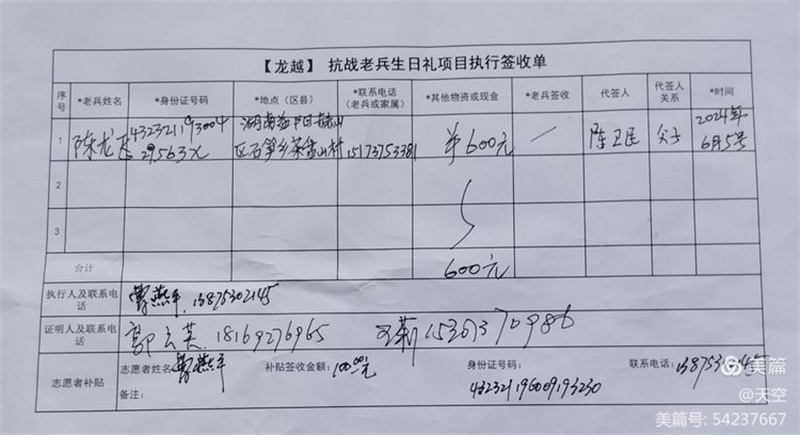 【龙越】 抗战老兵生日礼项目执行签收单
序号 *老兵姓名 *身份证号码 *地点（区县） *联系电话（老兵或家属） *其他物资或现金 *老兵签收 代签人 代签人关系 *时间
1 陈龙 432321193004 湖南益阳赫山 ¥600元 / 陈卫民 父子 2024年
29563X 区石笋乡 山村 15173753381 6月5号
2
3
合计 600元
执行人及联系电话 曹燕平 13875302145
证明人及联系电话 郭云英 18169276965 15367370986
志愿者补贴 志愿者姓名: 曹燕平 补贴签收金额: 100.00元 身份证号码: 432321196009193230 联系电话:
备注:
美篇
@天空
美篇号: 54237667